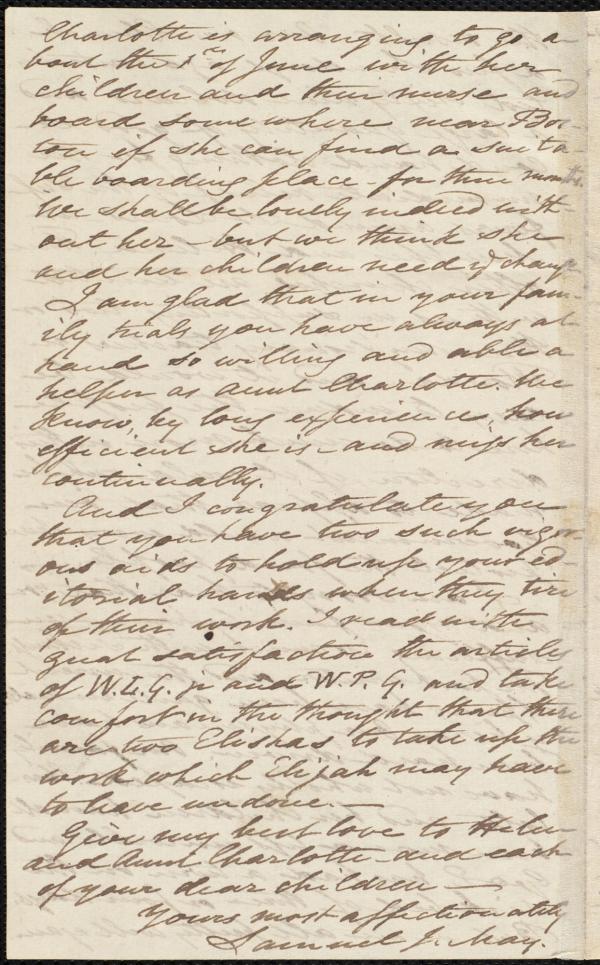 Charlotte is arranging to go a-
bout the 1st of June with her
children and their nurse and
board some where near Bos-
ton if she can find a suita-
ble boarding place - for three months.
We shall be lonely indeed with-
out her - but we think she
and her children need ye change
I am glad that in your fam-
ily trials you have always at
hand so willing and able a
helper as aunt Charlotte. We
know, by long experience, how
efficient she is - and miss her
continually.
And I congratulate you
that you have two such vigor-
ous aids to hold up your ed-
itorial hands when they tire
of their work. I read with
great satisfaction the articles
of W.L.G. jr and W.P.G. and take
comfort in the thought that there
are two Elishas to take up the
work which Elijah may have
to leave undone. —
Give my best love to Helen
and Aunt Charlotte - and each
of your dear children —
Yours most affectionately
Samuel J. May.